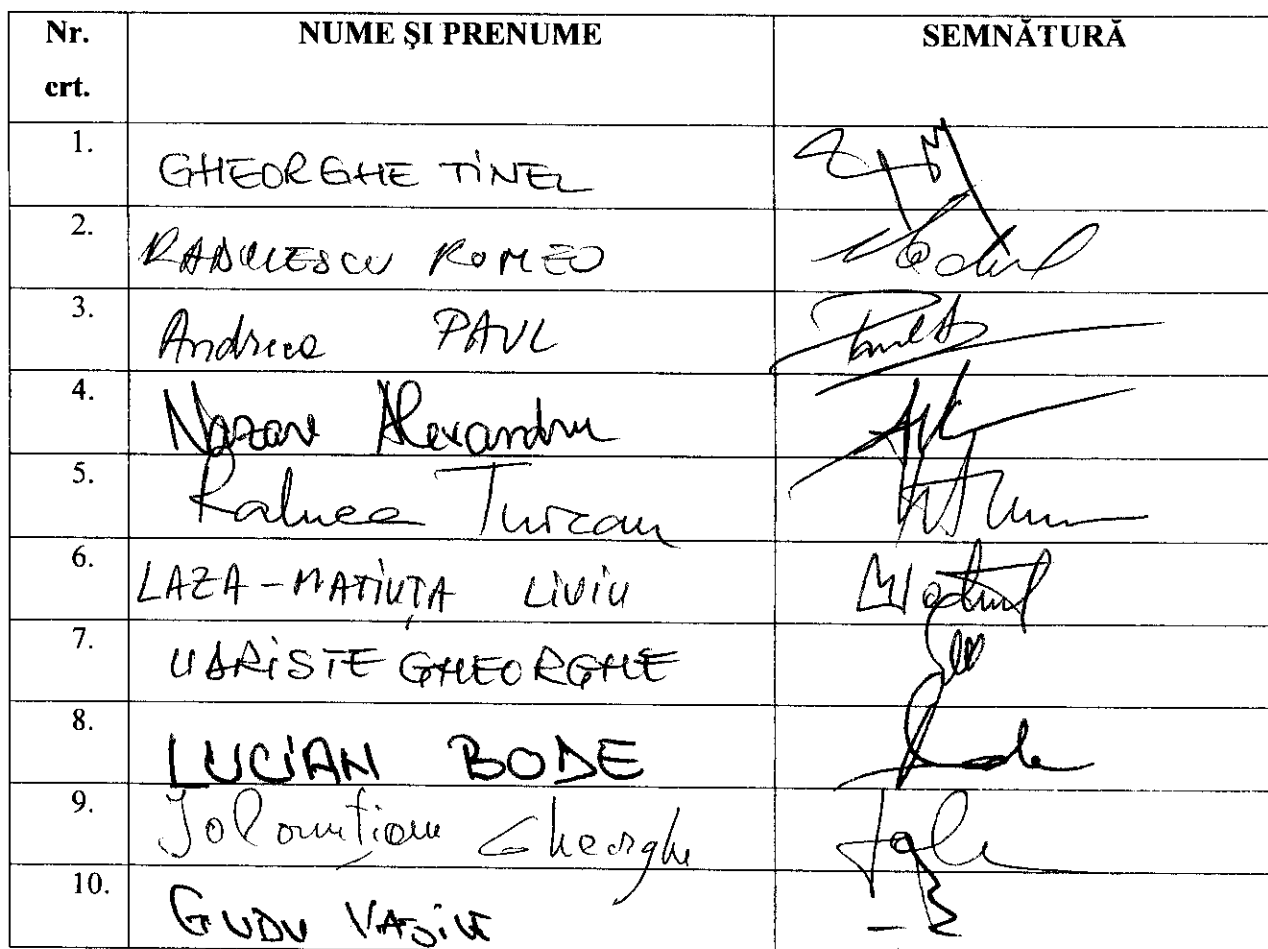 Nr. crt. NUME ŞI PRENUME SEMNĂTURĂ
1. GHEORGHE TINEL
2. RADULESCU ROMEO
3. Andreea PAUL
4. Nazare Alexandru
5. Raluca Turcan
6. LAZA-MATIUȚA LIVIU
7. UDRISTE GHEORGHE
8. LUCIAN BODE
9. Ialomițianu Gheorghe
10. GUDU VASILE